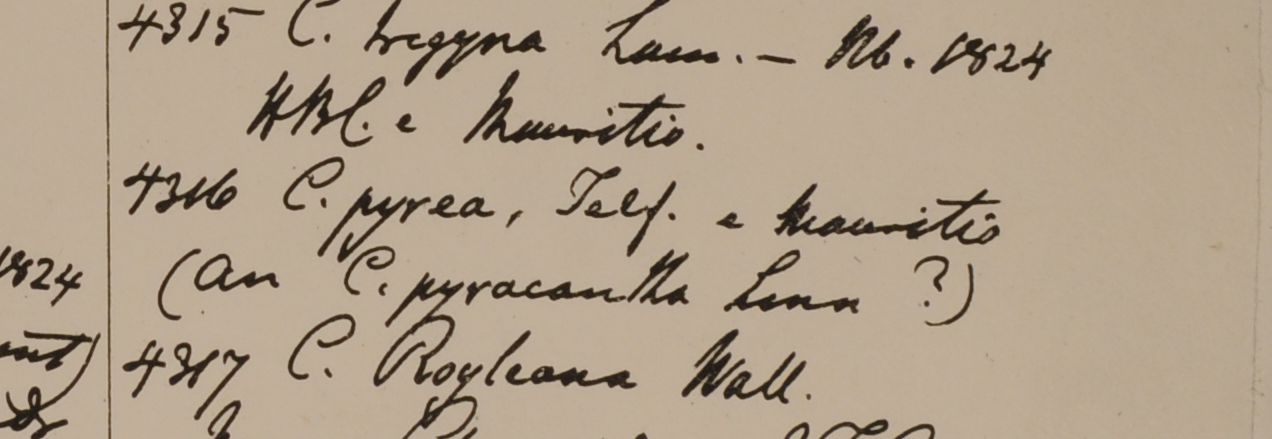 4315 C. trigyna Lam. — Nb. 1824
HBC. e Mauritio.
4316 C. pyrea, Telf. e Mauritio
1824
(an C. pyracantha Linn ?)
4317 C. Royleana Wall.